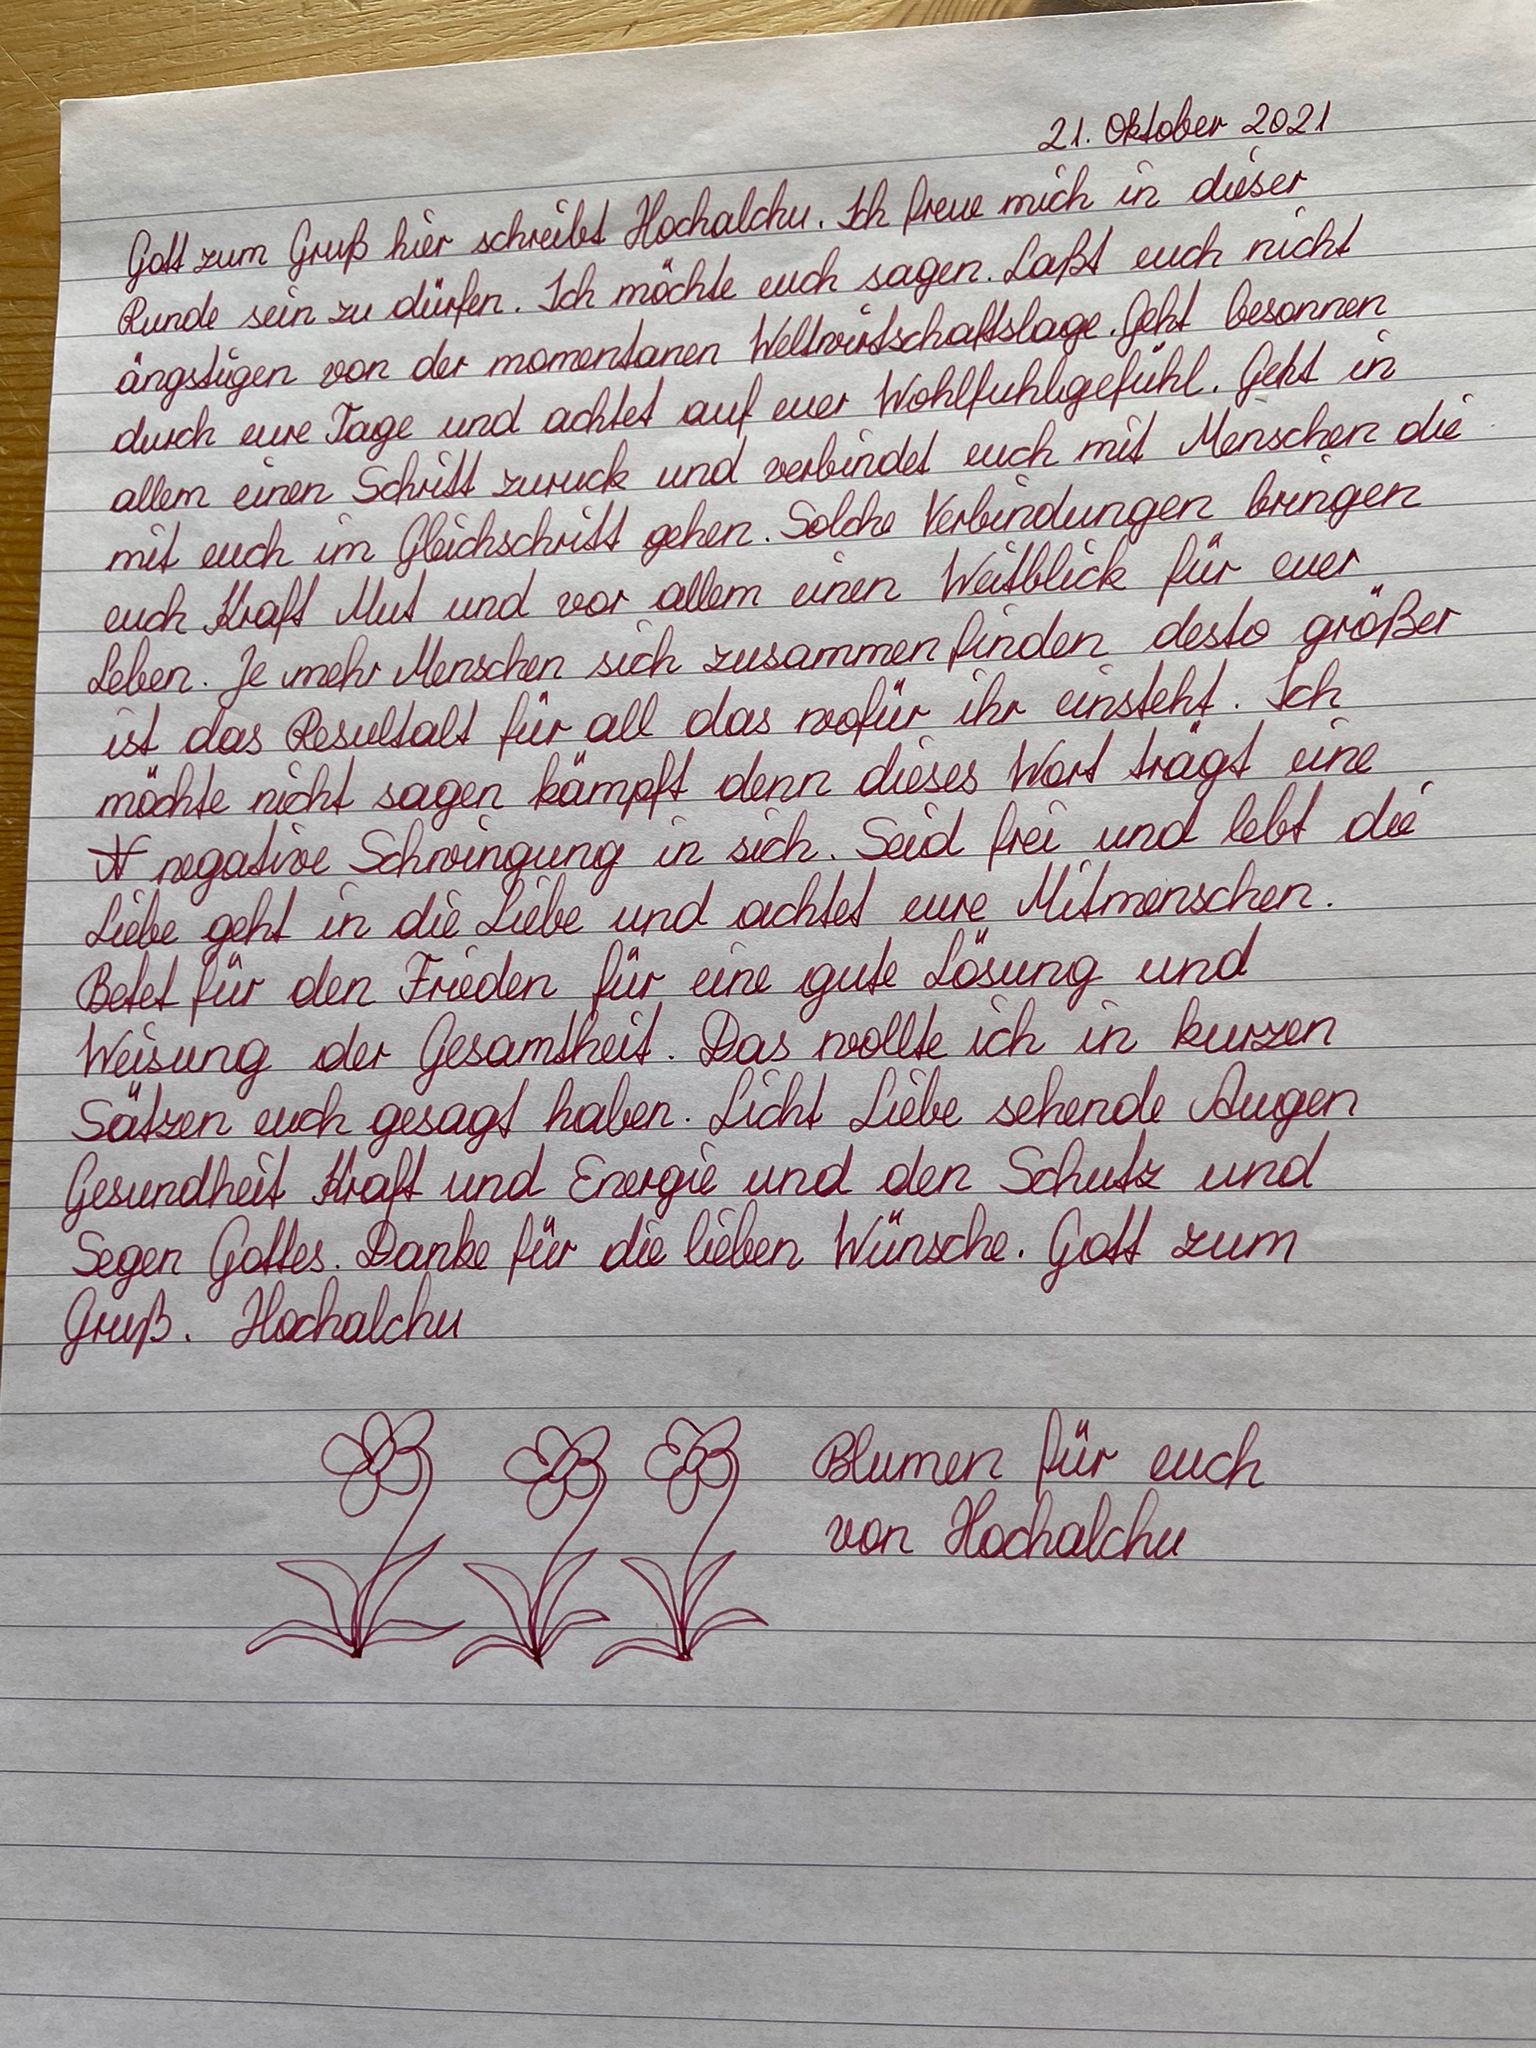 21. Oktober 2021
Gott zum Gruß hier schreibt Hochalchu. Ich freue mich in dieser
Runde sein zu dürfen. Ich möchte euch sagen. Laßt euch nicht
ängstigen von der momentanen Weltwirtschaftslage. Geht besonnen
durch eure Tage und achtet auf euer Wohlfuhlgefühl. Geht in
allem einen Schritt zuruck und verbindet euch mit Menschen die
mit euch im Gleichschritt gehen. Solche Verbindungen bringen
euch Kraft Mut und vor allem einen Weitblick für euer
Leben. Je mehr Menschen sich zusammenfinden desto größer
ist das Resultalt für all das wofür ihr einsteht. Ich
möchte nicht sagen kämpft denn dieses Wort trägt eine
negative Schwingung in sich. Seid frei und lebt die
Liebe geht in die Liebe und achtet eure Mitmenschen.
Betet für den Frieden für eine gute Lösung und
Weisung der Gesamtheit. Das wollte ich in kurzen
Sätzen euch gesagt haben. Licht Liebe sehende Augen
Gesundheit Kraft und Energie und den Schutz und
Segen Gottes. Danke für die lieben Wünsche. Gott zum
Gruß. Hochalchu
Blumen für euch
von Hochalchu